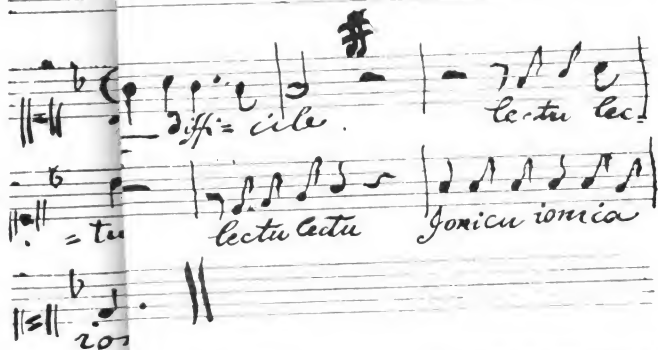 diffi= cile.
lectu lec=
=tu lectu lectu Jonicu ionica